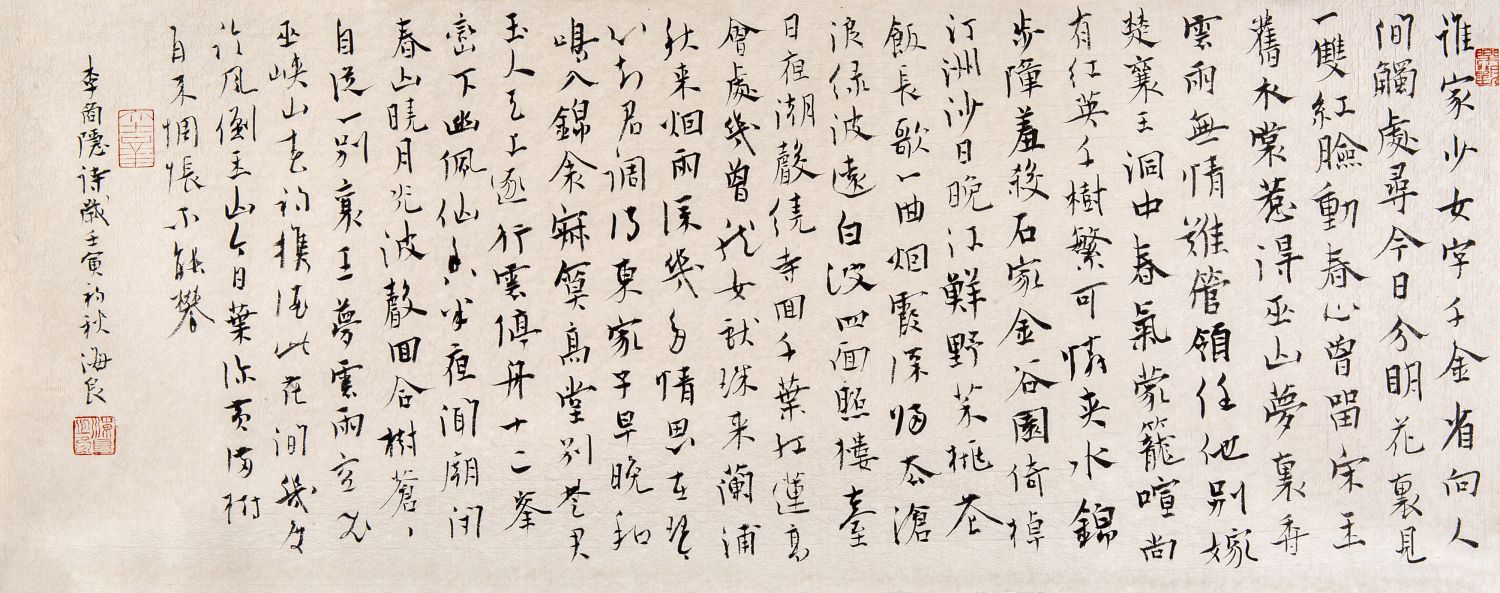 谁家少女字千金省向人
間觸處尋今日分明花裏見
一雙紅臉動春心曾留宋玉
舊衣裳惹得巫山夢裏香
雲雨無情難管領任他別嫁
楚襄王洞中春氣蒙籠喧尚
有紅英千樹繁可憐夾水錦
步障羞殺石家金谷園倚棹
汀洲沙日晚江鮮野菜桃花
飯長歌一曲烟霞深歸去滄
浪綠波遠白波四面照樓臺
日夜潮聲繞寺回千葉紅蓮高
會處幾曾龍女献珠来蘭浦
秋来烟雨深幾多情思在琴
心知君調得東家子早晚和
鳴入錦衾寂寞高堂別楚君
玉人天上逐行雲停舟十二峯
巒下幽佩仙香半夜聞廟闭
春山曉月光波聲回合樹蒼丶
自從一別襄王夢雲雨空飛
巫峽山春初攜酒此花間幾度
臨風倒玉山今日葉深黄滿樹
再来惆悵不能攀
李商隱诗歲壬寅初秋海良